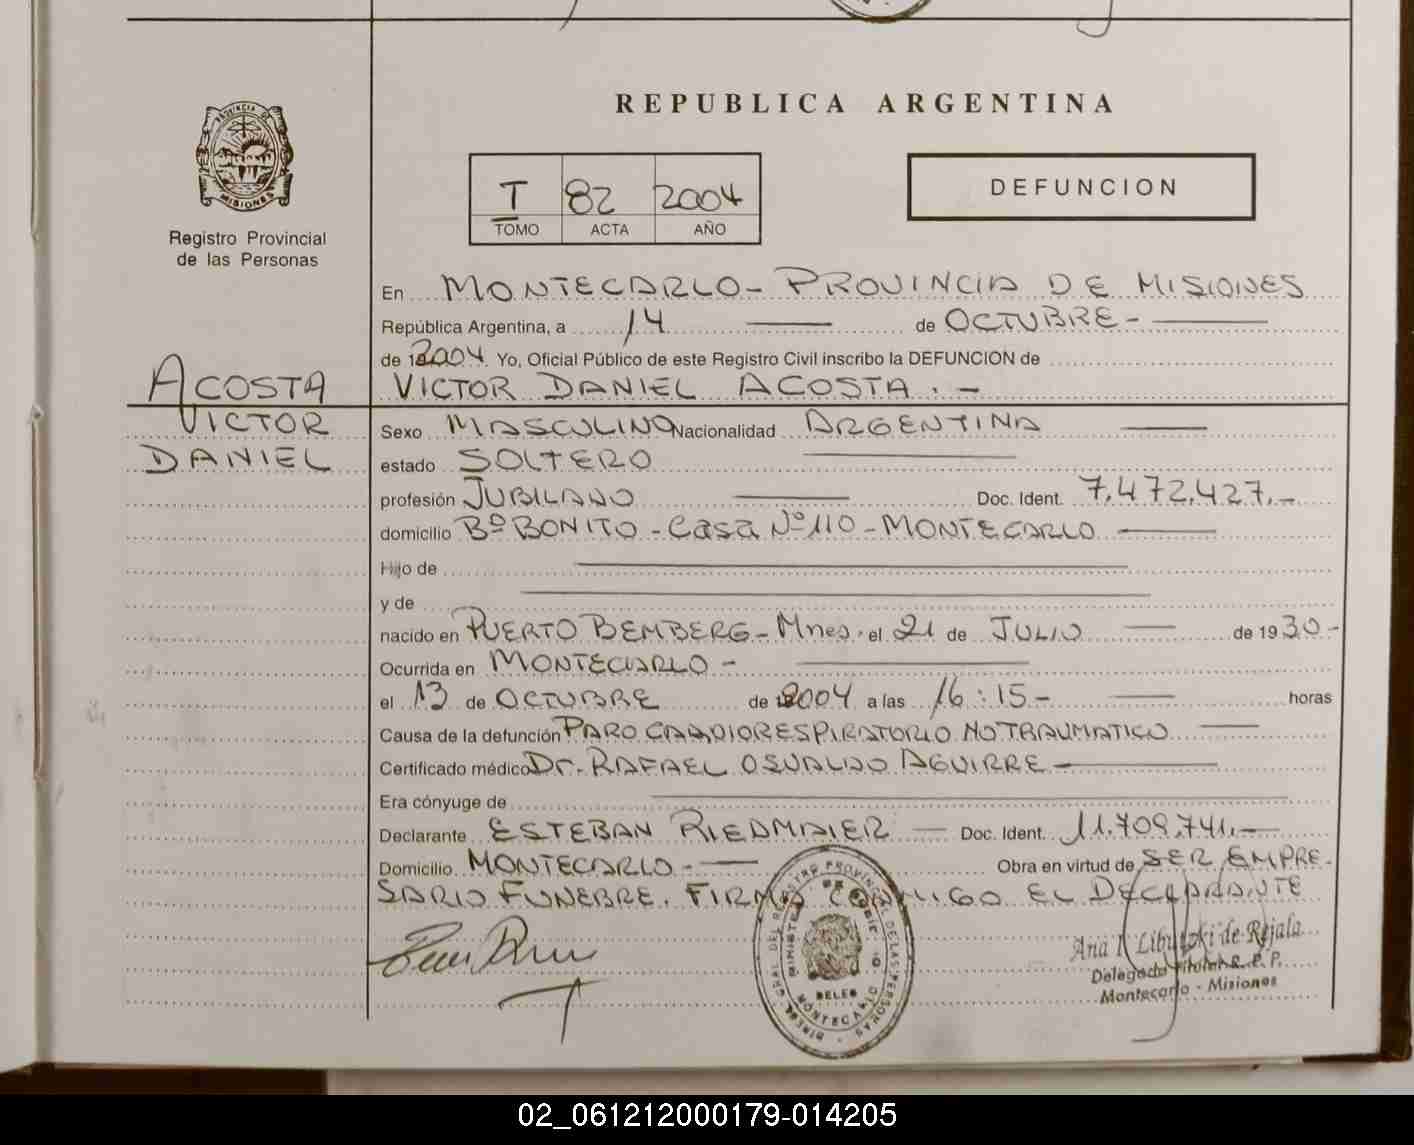 PROVINCIA DE
MISIONES
Registro Provincial
de las Personas
REPUBLICA ARGENTINA
T 82 2004
TOMO ACTA AÑO
DEFUNCION
En MONTECARLO - PROVINCIA DE MISIONES
República Argentina, a 14 de OCTUBRE -
de 2004 Yo, Oficial Público de este Registro Civil inscribo la DEFUNCION de
VICTOR DANIEL ACOSTA . -
ACOSTA
VICTOR
DANIEL
Sexo MASCULINO Nacionalidad ARGENTINA
estado SOLTERO
profesión JUBILADO Doc. Ident. 7.472.427.-
domicilio Bº BONITO - Casa Nº 110 - MONTECARLO
Hijo de
y de
nacido en PUERTO BEMBERG - Mnes. el 21 de JULIO de 1930-
Ocurrida en MONTECARLO -
el 13 de OCTUBRE de 2004 a las 16:15- horas
Causa de la defunción PARO CARDIORESPIRATORIO NO TRAUMATICO
Certificado médico Dr. RAFAEL OSVALDO AGUIRRE -
Era cónyuge de
Declarante ESTEBAN RIEDMAIER - Doc. Ident. 11.709.741.-
Domicilio MONTECARLO - Obra en virtud de SER EMPRE-
SARIO FUNEBRE. FIRMA CONMIGO EL DECLARANTE
Ana I. Libutzki de Rejala
Delegada Titular R. P. P.
Montecarlo - Misiones
02_061212000179-014205